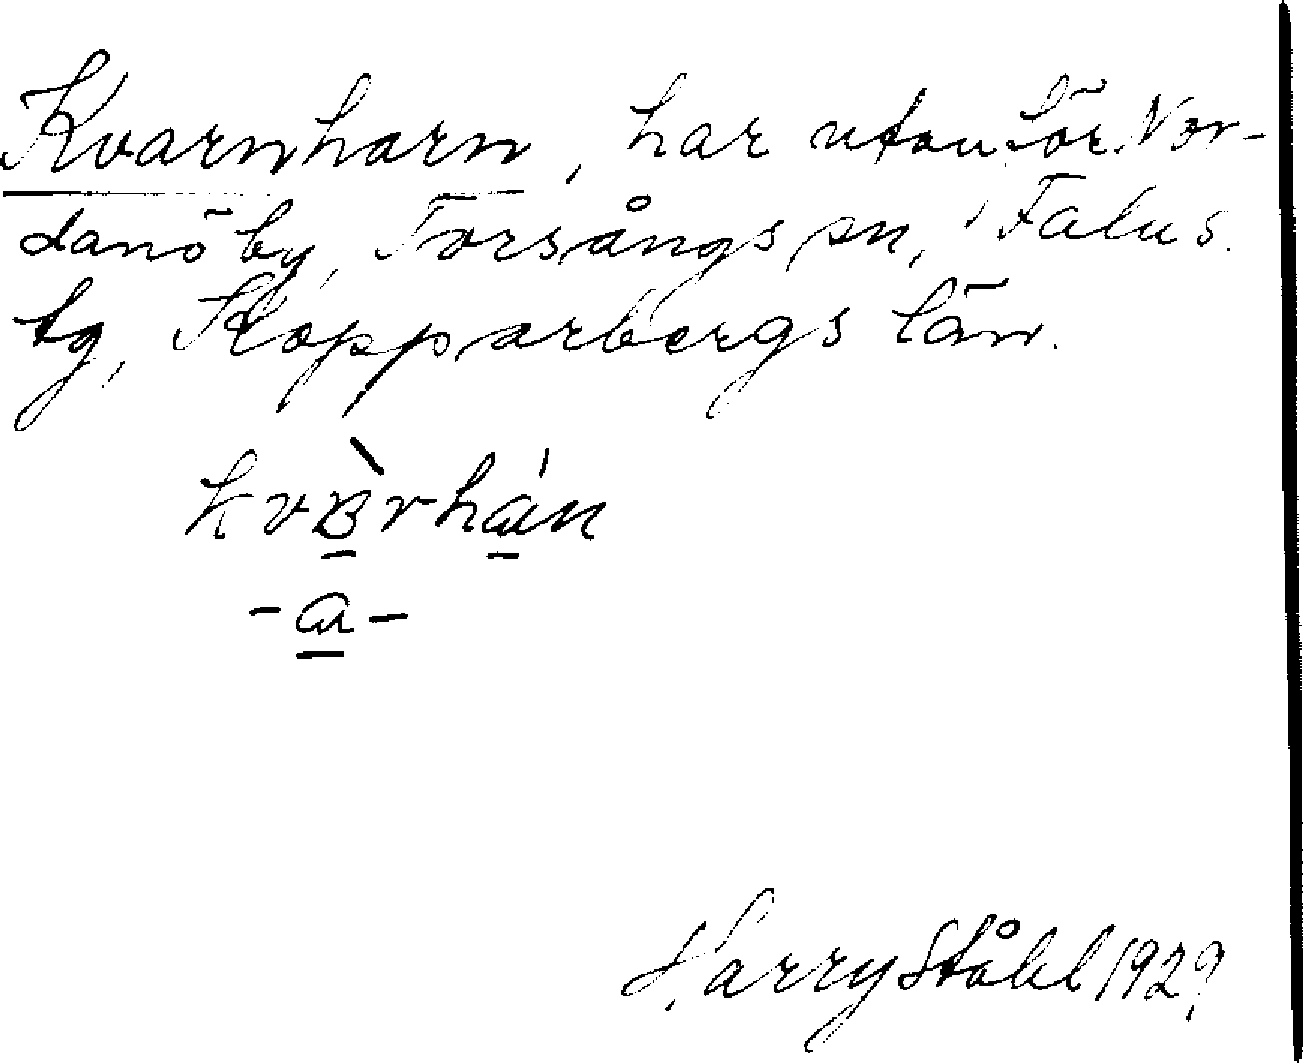 Kvarnharn, har utanför Nor-
danö by, Torsångs sn, Falus
tg, Kopparbergs län.
kvʙ̀rhán
-a-
Harry Ståhl 1929